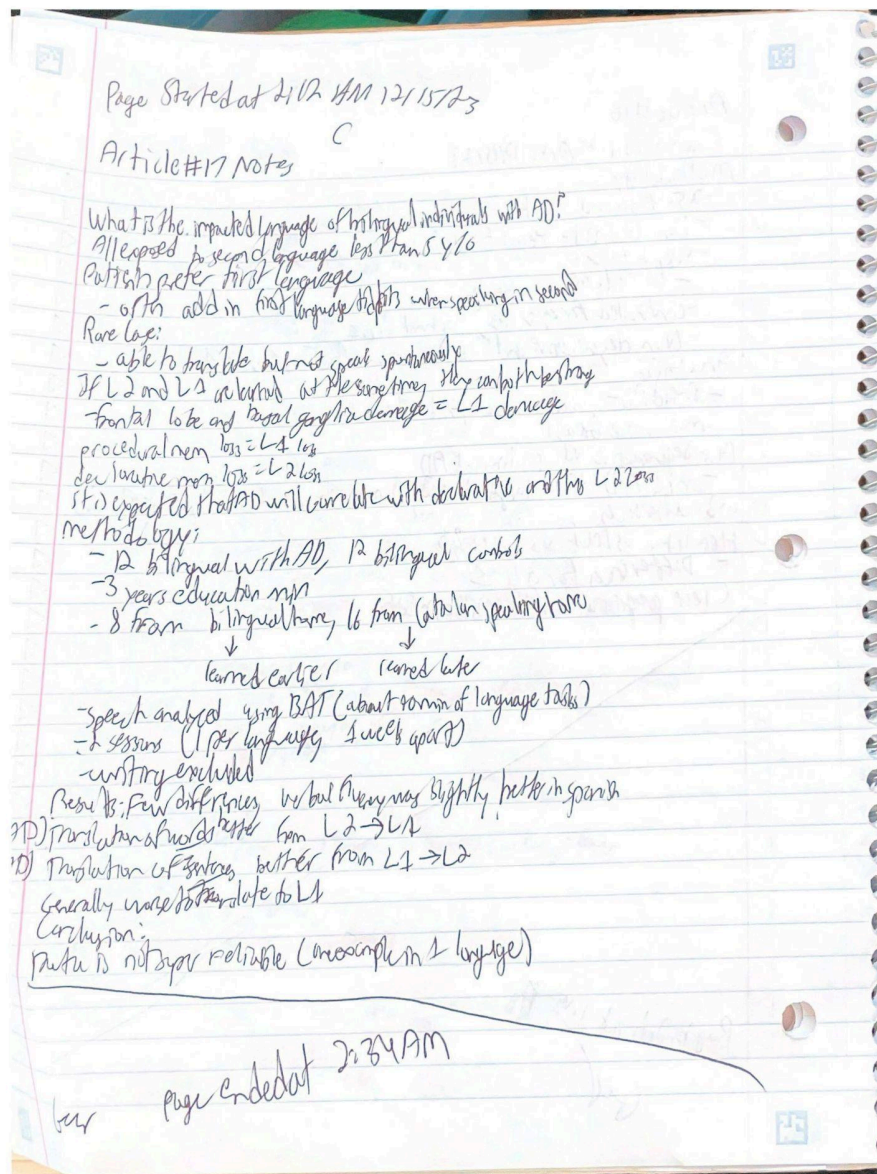 Page Started at 2:12 AM 12/15/23
C
Article #17 Notes
What is the impacted language of bilingual individuals with AD?
All exposed to second language less than 5 y/o
prefer first language
- often add in first language tidbits when speaking in second
Rare Case:
- able to translate but not speak spontaneously
If L2 and L1 are learned at the same time, they can both be strong
- frontal lobe and basal ganglia damage = L1 damage
procedural mem loss = L1 loss
declarative mem loss = L2 loss
it is expected that AD will correlate with declarative and thus L2 loss
methodology:
- 12 bilingual with AD, 12 bilingual controls
- 3 years education min
- 8 from bilingual home, 16 from Catalan speaking home
↓ ↓
learned earlier learned later
- speech analyzed using BAT (about 90 min of language tasks)
- 2 sessions (1 per language, 1 week apart)
- writing excluded
Results: Few differences, verbal fluency was slightly better in spanish
Translation of words better from L2 → L1
Translation of sentences better from L1 → L2
Generally worse to translate to L1
Conclusion:
Data is not super reliable (one example in 1 language)
page ended at 2:34 AM